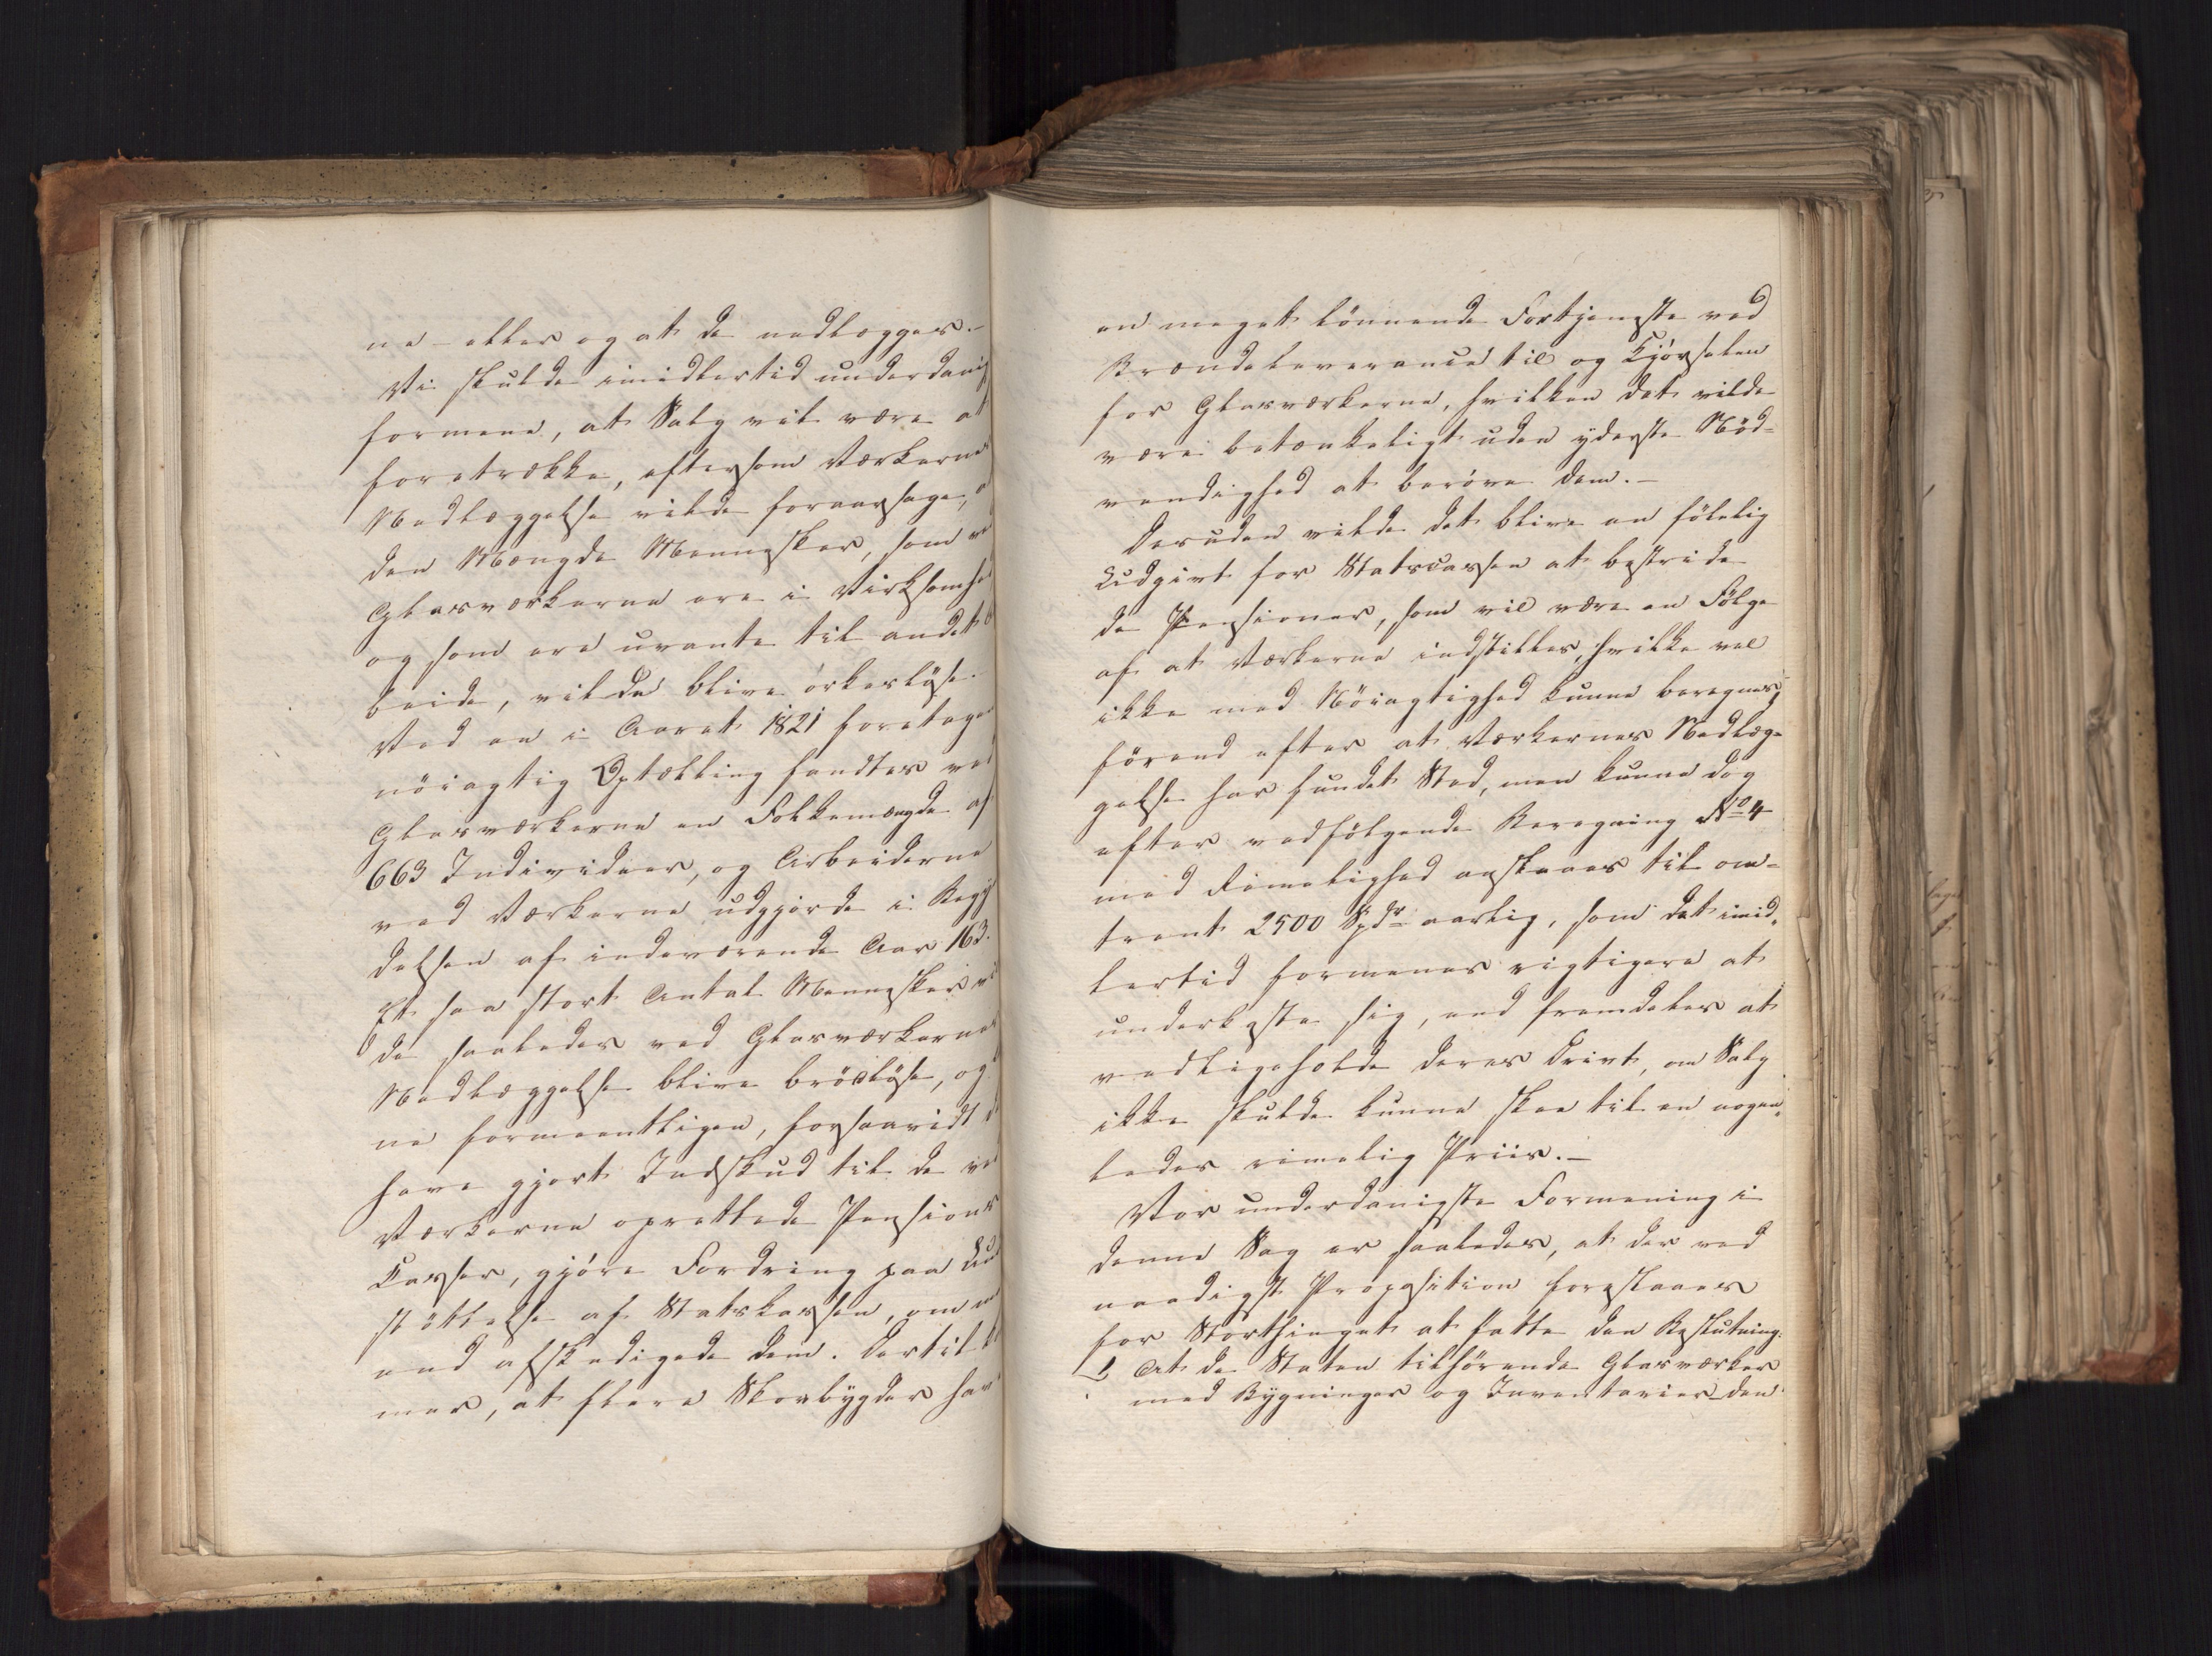 ne – eller og at de nedlægges. –
Vi skulde imidlertid underdanig
formene, at Salg vil være at
foretrække, eftersom Værkernes
Nedlæggelse vilde foraarsage, a
den Mængde Mennesker, som ved
Glasværkerne ere i Virksomhed
og som ere uvante til andet
beide, vilde blive ørkesløse.
Ved en i Aaret 1821 foretagen
nöiagtig Optælling fandtes ved
Glasværkerne en Folkemængde af
663 Individuer, og Arbeiderne
ved Værkerne udgjorde i Begyn
delsen af indeværende Aar 163.
Et saa stort Antal Mennesker vil
da saaledes ved Glasværkernes
Nedlæggelse blive brödløse, og
ne formeentligen, forsaavidt de
have gjort Indskud til de ved
Værkerne oprettede Pensions
Casser, gjöre Fordring paa Und
støttelse af Statskassen, om m
end afskedigede dem. Dertil
mer, at flere Skovbygder hav
en meget lönnende Fortjeneste ved
Brændeleverance til og Kjørselen
for Glasværkerne, hvilken det vilde
være betænkeligt uden yderste Nød-
vendighed at beröve dem. –
Desuden vilde det blive en følelig
Udgivt for Statscassen at bestride
de Pensioner, som vil være en Følge
af at Værkerne indstilles, hvilke vel
ikke med Nöiagtighed kunne beregnes,
förend efter at Værkernes Nedlæg-
gelse har fundet Sted, men kunne dog
efter vedfölgende Beregning No 4
med Rimelighed anslaaes til om-
trent 2500 Spdr aarlig, som det imid-
lertid formenes rigtigere at
underkaste sig, end fremdeles at
vedligeholde deres Drivt, om Salg
ikke skulde kunne skee til en nogen-
ledes rimelig Priis. –
Vor underdanigste Formening i
denne Sag er saaledes, at der ved
naadigst Proposition foreslaaes
for Storthinget at fatte den Beslutning:
1, At de Staten tilhörende Glasværker
med Bygninger og Inventarier den